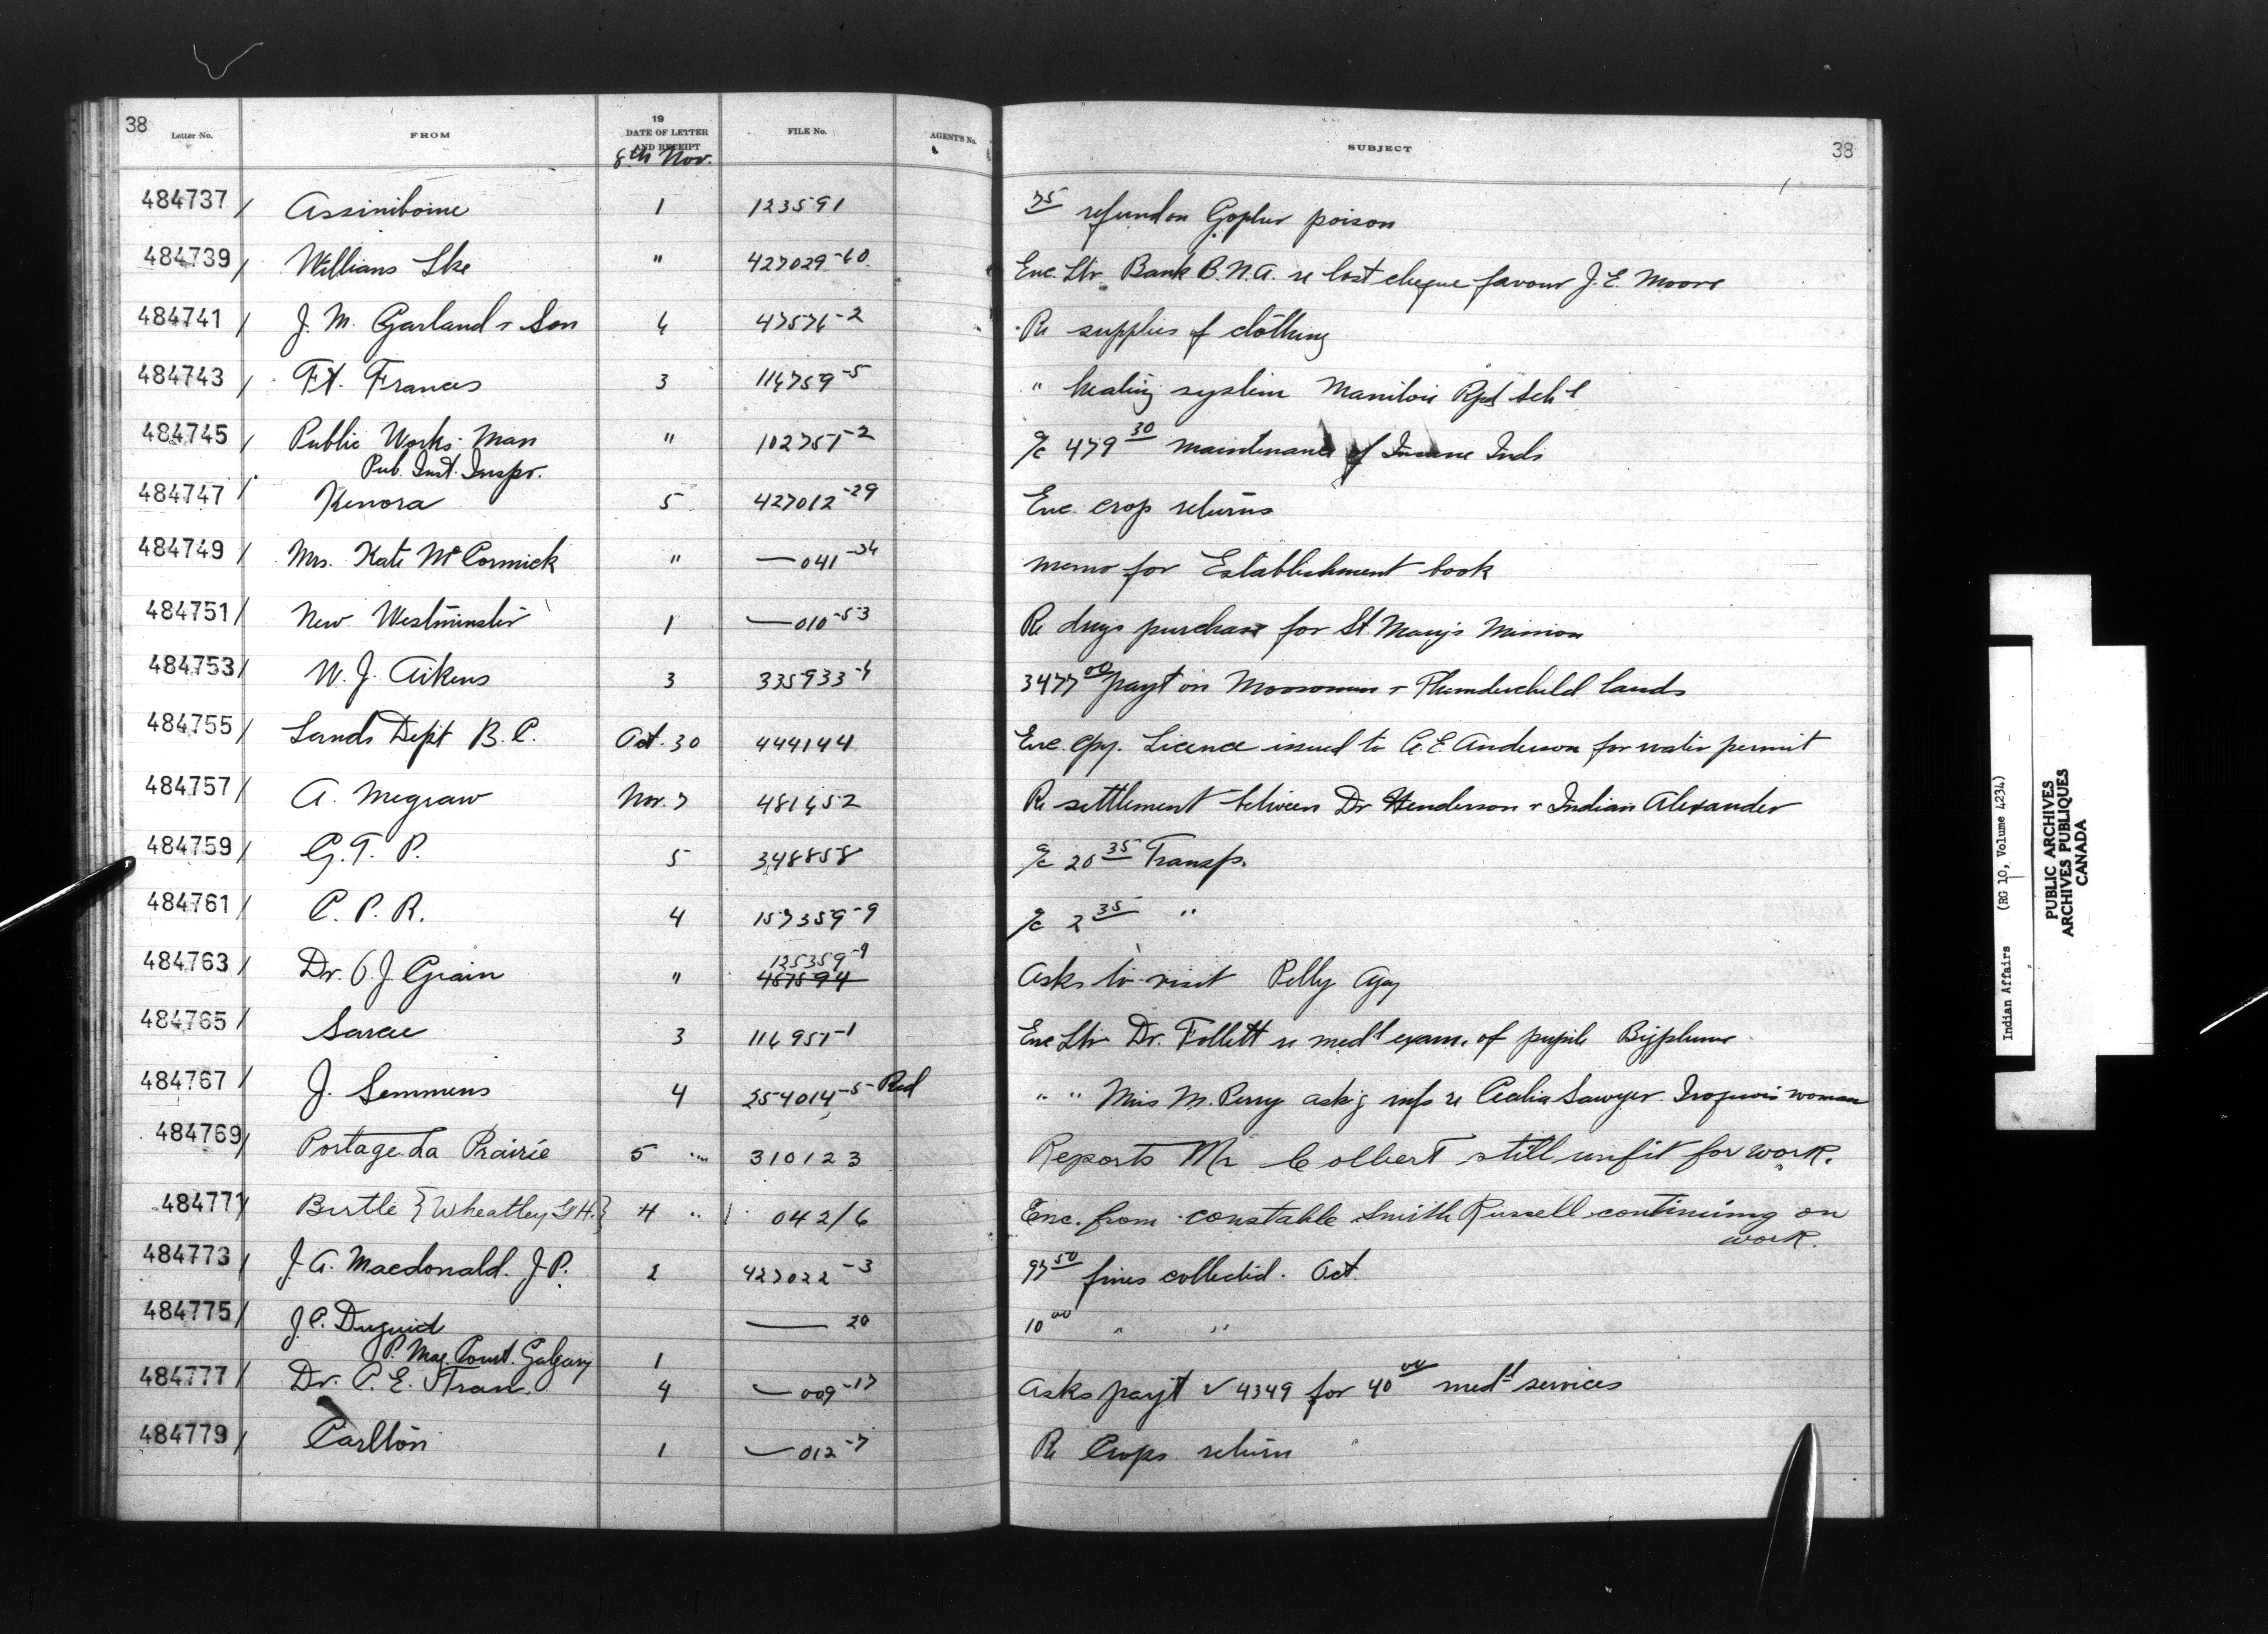 38
Letter No. FROM 19 DATE OF LETTER AND RECEIPT FILE No. AGENT'S No. SUBJECT 38
8th Nov.
484737 / Assiniboine 1 123591 75 refund on Gopher poison
484739 / Willians Lke " 427029-60 Enc. Ltr. Bank B.N.A. re lost cheque favour J. E. Moore
484741 / J. M. Garland & Son 6 47576-2 Re supplies of clothing
484743 / Ft. Frances 3 116759-5 " heating system Manitou Rpds Sch l
484745 / Public Works Man " 102751-2 a/c 479 30 maintenance of Insane Inds
Pub. Inst. Inspr.
484747 / Kenora 5 427012-29 Enc. crop returns
484749 / Mrs. Kate McCormick " — 041-34 memo for Establishment book
484751 / New Westminster 1 — 010-53 Re drugs purchase for St Mary's Mission
484753 / W. J. Aikens 3 335933-4 3477 00 payt on Moosomin & Thunderchild lands
484755 / Lands Dept B.C. Oct. 30 444144 Enc. cpy. Licence issued to A. E. Anderson for water permit
484757 / A. Megraw Nov. 7 481652 Re settlement between Dr Henderson & Indian Alexander
484759 / G. T. P. 5 348858 a/c 20 35 Transp.
484761 / C. P. R. 4 157359-9 a/c 2 35 "
484763 / Dr. O. J. Grain " 135359-9 457594 Asks to visit Pelly Agy
484765 / Sarcee 3 116951-1 Enc Ltr Dr. Follett re med l exam. of pupil Bigplume
484767 / J. Semmens 4 254014-5 Red " " Miss M. Perry ask'g info re Cecelia Sawyer Iroquois woman
484769 / Portage La Prairie 5 " 310123 Reports Mr Colbert still unfit for work.
484771 / Birtle {Wheatley G H.} 4 " 042/6 Enc. from constable Smith Russell continuing on
work.
484773 / J. A. Macdonald. J P. 2 427022-3 97 50 fines collected. Oct.
484775 / J. C. Duguid — 20 10 00 " "
P. Mag. Court. Calgary 1
484777 / Dr. C. E. Stran. 4 — 009-17 Asks payt v 4349 for 40 00 med l services
484779 / Carlton 1 — 012-7 Re Crops return
Indian Affairs (RG 10, Volume 4234)
PUBLIC ARCHIVES
ARCHIVES PUBLIQUES
CANADA